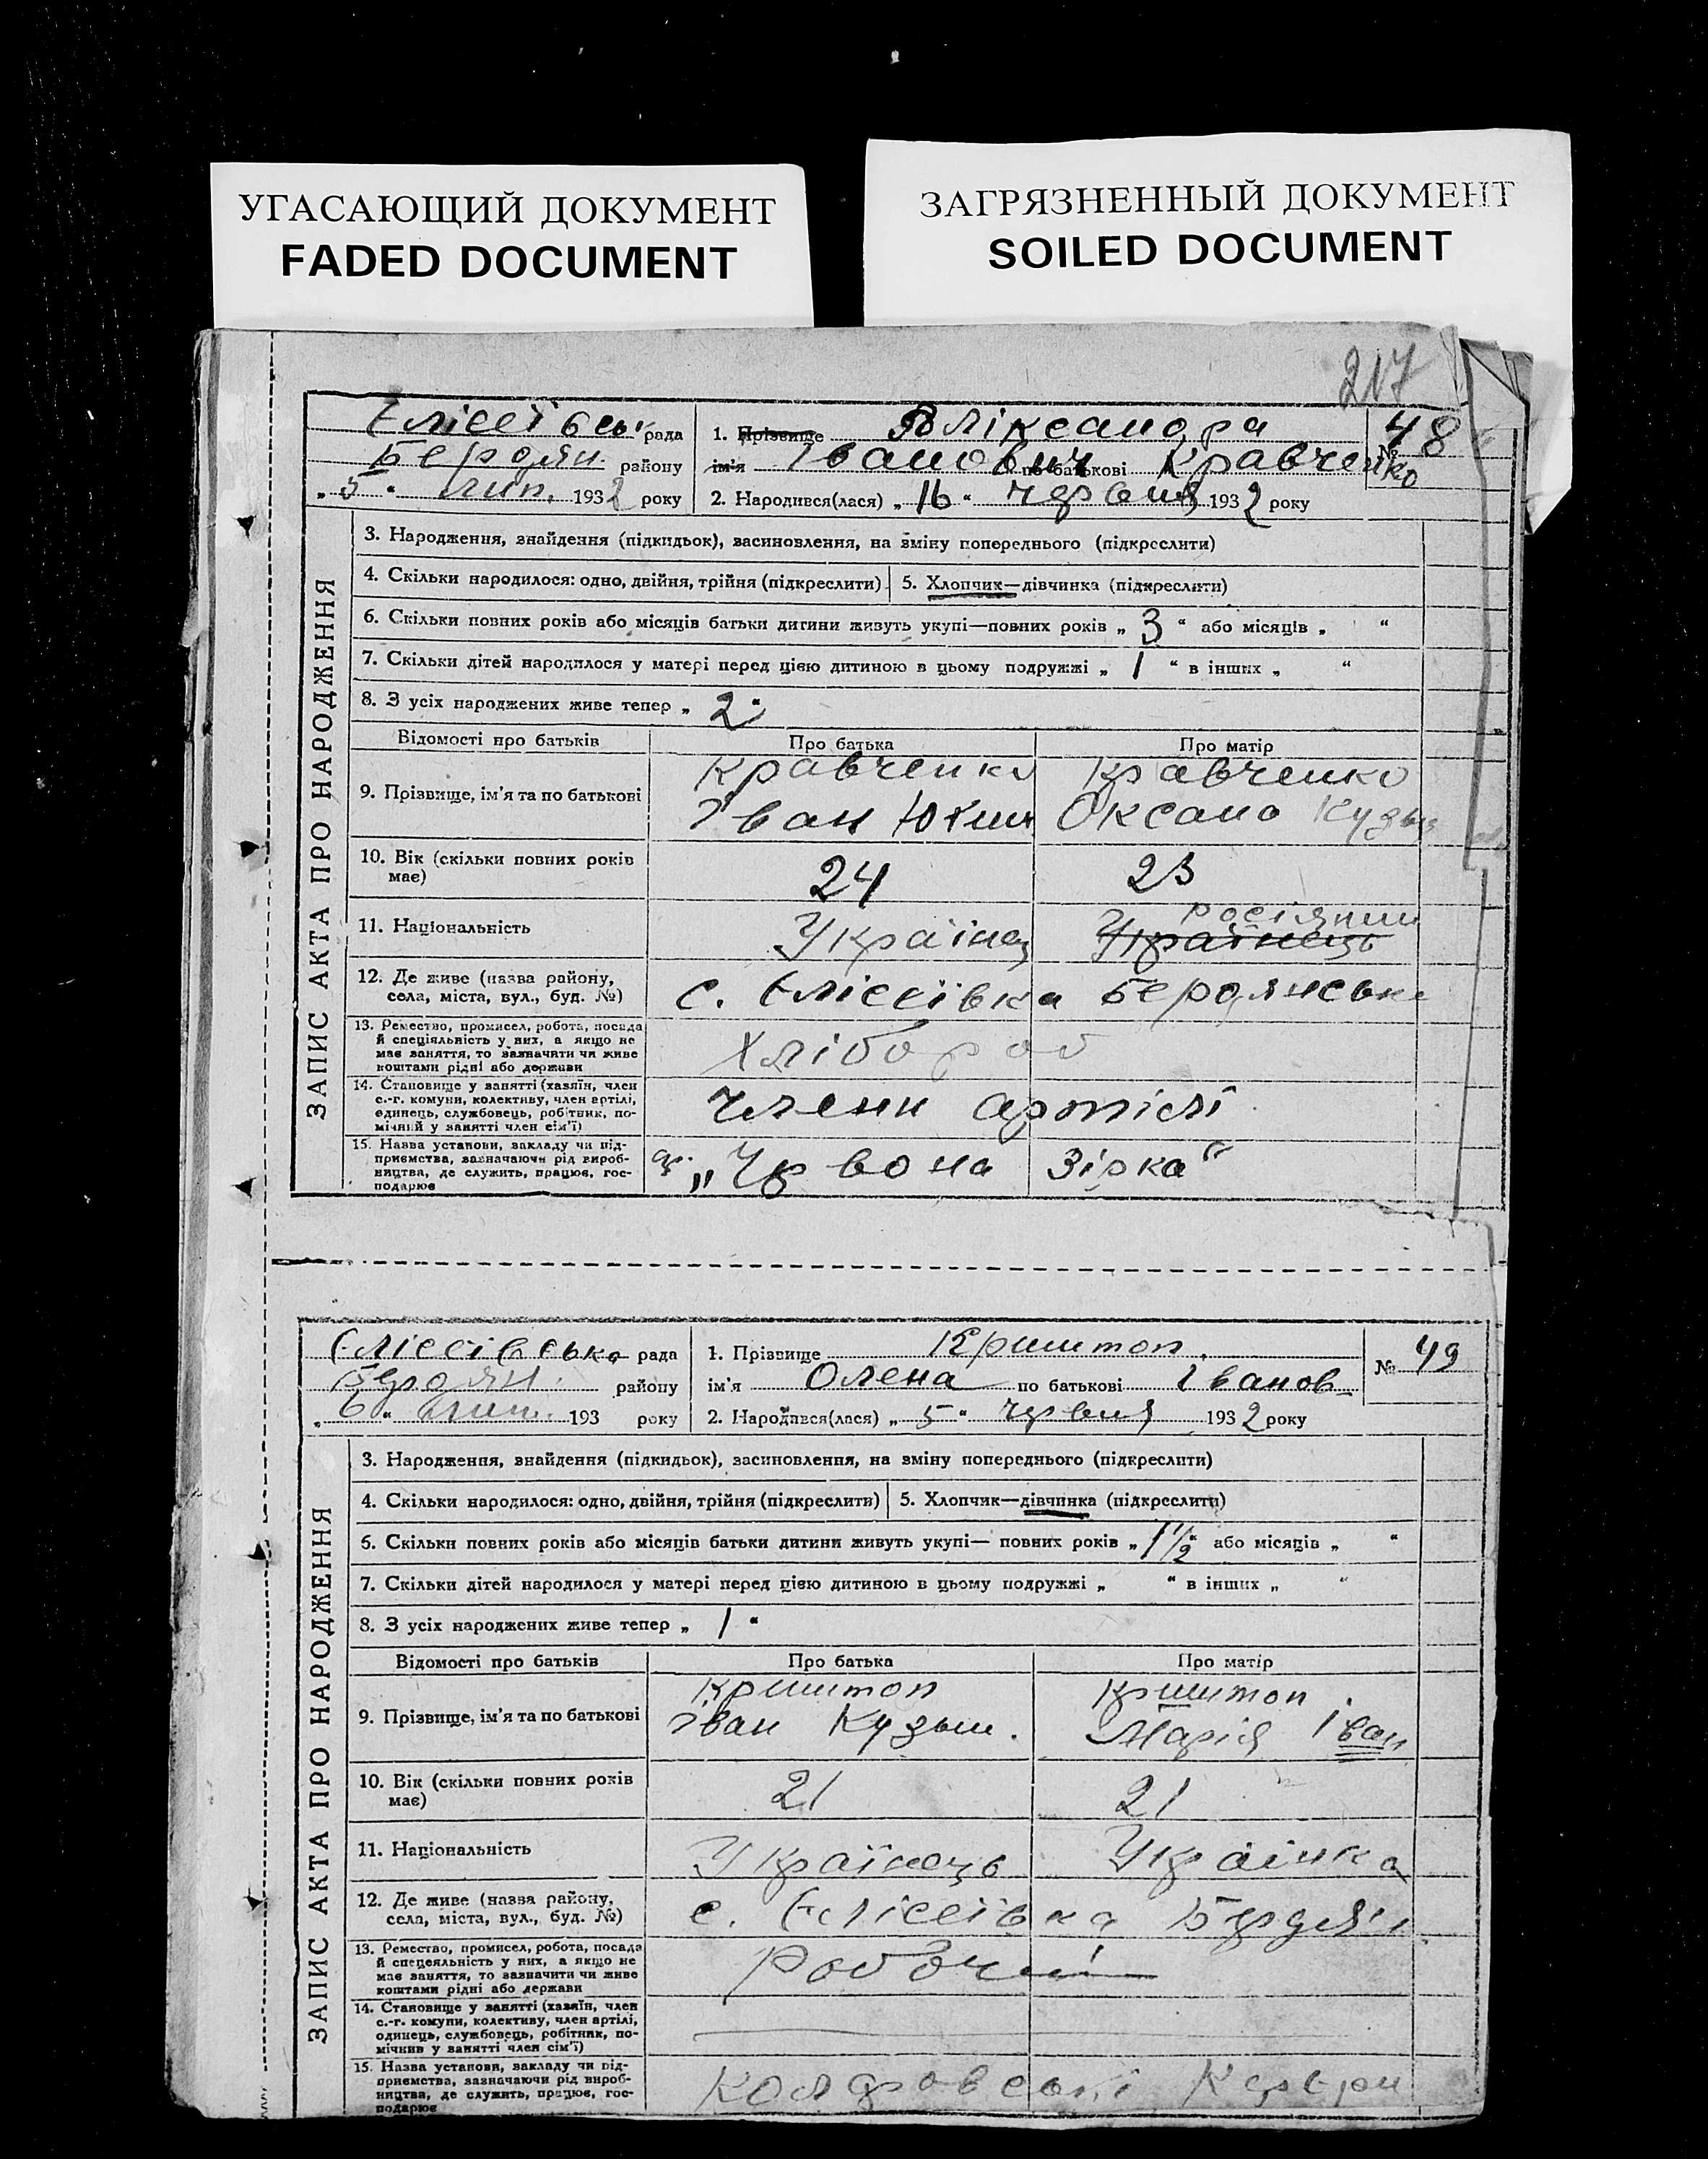 УГАСАЮЩИЙ ДОКУМЕНТ
FADED DOCUMENT
ЗАГРЯЗНЕННЫЙ ДОКУМЕНТ
SOILED DOCUMENT
217
Єлісеївсь рада
Бердян. району
„ 5 “ лип. 1932 року
1. Прізвище Оліксандра
ім'я Іванович по батькові Кравченко
2. Народився(лася) „ 16 “ червня 1932 року
№ 48
ЗАПИС АКТА ПРО НАРОДЖЕННЯ
3. Народження, знайдення (підкидьок), васиновлення, на зміну попереднього (підкреслити)
4. Скільки народилося: одно, двійня, трійня (підкреслити)
5. Хлопчик—дівчинка (підкреслити)
6. Скільки повних років або місяців батьки дитини живуть укупі—повних років „ 3 “ або місяців „ “
7. Скільки дітей народилося у матері перед цією дитиною в цьому подружжі „ 1 “ в інших „ “
8. З усіх народжених живе тепер „ 2 “
Відомості про батьків Про батька Про матір
9. Прізвище, ім'я та по батькові
Кравченко Кравченко
Іван Юхим Оксана Кузьм
10. Вік (скільки повних років має) 24 23
11. Національність Українец Українець росіянин
12. Де живе (назва району, села, міста, вул., буд. №) с. Єлісеївка Бердянське
13. Ремество, промисел, робота, посада й спеціяльність у них, а якщо не має заняття, то зазначити чи живе коштами рідні або держави
Хлібороб
14. Становище у занятті (хазяїн, член с.-г. комуни, колективу, член артілі, одинець, службовець, робітник, помічний у занятті член сім'ї)
Члени артілі
15. Назва установи, закладу чи підприємства, зазначаючи рід виробництва, де служить, працює, господарює
„Червона Зірка“
Єлісеївська рада
Бердян. району
„ 6 “ лип. 193 року
1. Прізвище Криштоп
ім'я Олена по батькові Іванов
2. Народився(лася) „ 5 “ червня 1932 року
№ 49
ЗАПИС АКТА ПРО НАРОДЖЕННЯ
3. Народження, знайдення (підкидьок), васиновлення, на зміну попереднього (підкреслити)
4. Скільки народилося: одно, двійня, трійня (підкреслити)
5. Хлопчик—дівчинка (підкреслити)
6. Скільки повних років або місяців батьки дитини живуть укупі— повних років „ 1 1/2 “ або місяців „ “
7. Скільки дітей народилося у матері перед цією дитиною в цьому подружжі „ “ в інших „ “
8. З усіх народжених живе тепер „ 1 “
Відомості про батьків Про батька Про матір
9. Прізвище, ім'я та по батькові
Криштоп Криштоп
Іван Кузьм. Марія Іван
10. Вік (скільки повних років має) 21 21
11. Національність Українець Українка
12. Де живе (назва району, села, міста, вул., буд. №) с. Єлісеївка Бердян.
13. Ремество, промисел, робота, посада й спеціяльність у них, а якщо не має заняття, то зазначити чи живе коштами рідні або держави
Робочий
14. Становище у занятті (хазяїн, член с.-г. комуни, колективу, член артілі, одинець, службовець, робітник, помічник у занятті член сім'ї)
15. Назва установи, закладу чи підприємства, зазначаючи рід виробництва, де служить, працює, господарює